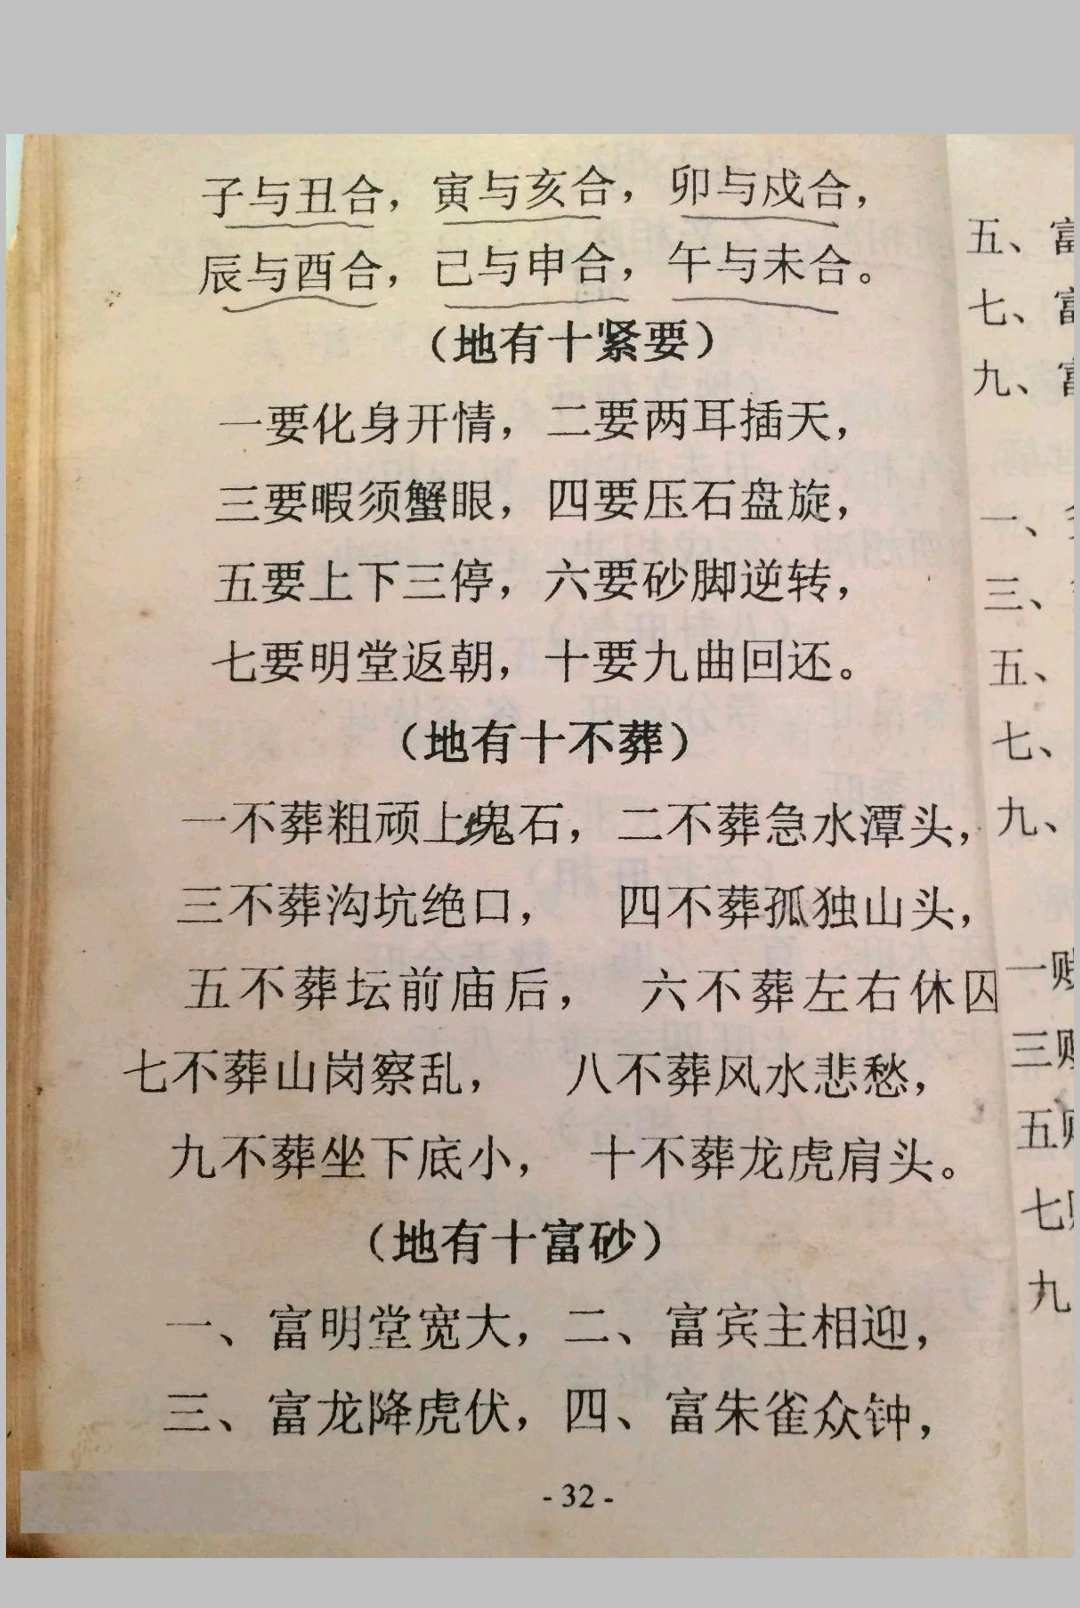 子与丑合，寅与亥合，卯与戍合，
辰与酉合，已与申合，午与未合。
（地有十紧要）
一要化身开情，二要两耳插天，
三要暇须蟹眼，四要压石盘旋，
五要上下三停，六要砂脚逆转，
七要明堂返朝，十要九曲回还。
（地有十不葬）
一不葬粗顽上块石，二不葬急水潭头，
三不葬沟坑绝口，四不葬孤独山头，
五不葬坛前庙后，六不葬左右休囚
七不葬山岗察乱，八不葬风水悲愁，
九不葬坐下底小，十不葬龙虎肩头。
（地有十富砂）
一、富明堂宽大，二、富宾主相迎，
三、富龙降虎伏，四、富朱雀众钟，
- 32 -
五、富
七、富
九、富
一、
三、
五、
七、
九、
一贱
三贱
五贱
七
九